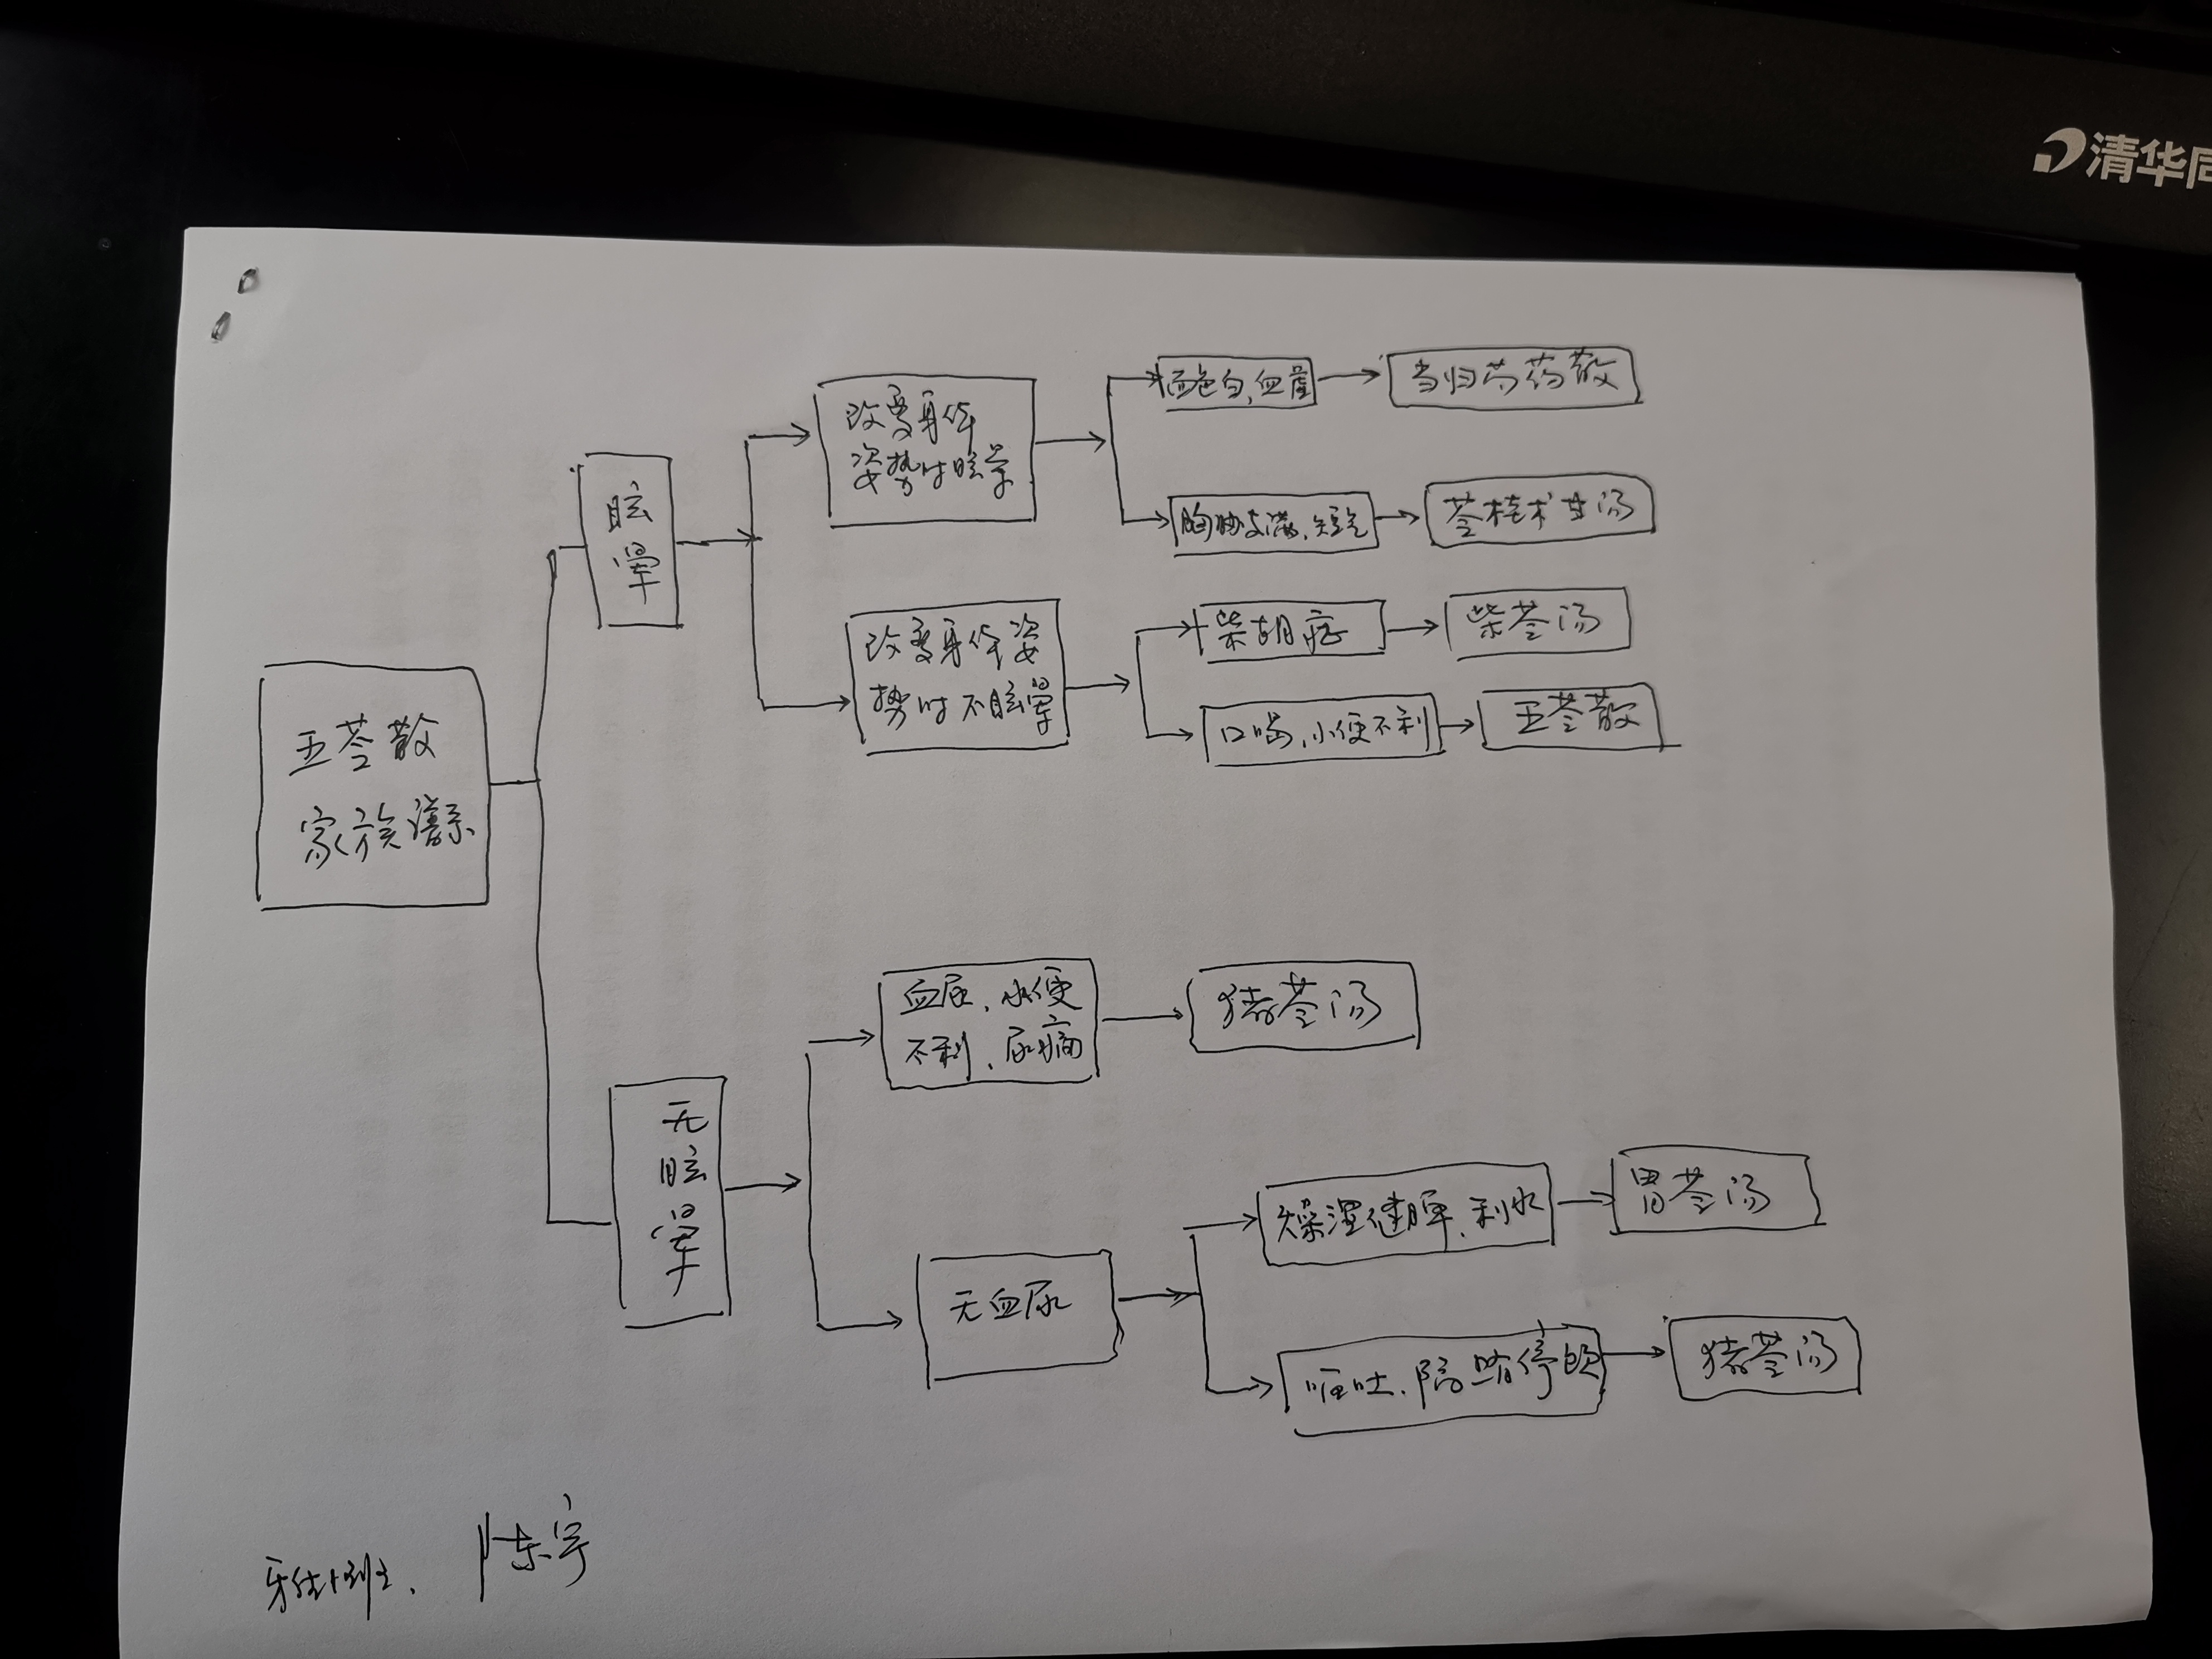 清华同
改变身体
姿势时眩晕
面色白、血虚
当归芍药散
胸胁支满、短气
苓桂术甘汤
眩
晕
改变身体姿
势时不眩晕
柴胡症
柴苓汤
口渴、小便不利
五苓散
五苓散
家族谱系
血尿、小便
不利、尿痛
猪苓汤
无
眩
晕
无血尿
燥湿健脾、利水
胃苓汤
呕吐、隔踏停饮
猪苓汤
陈宇